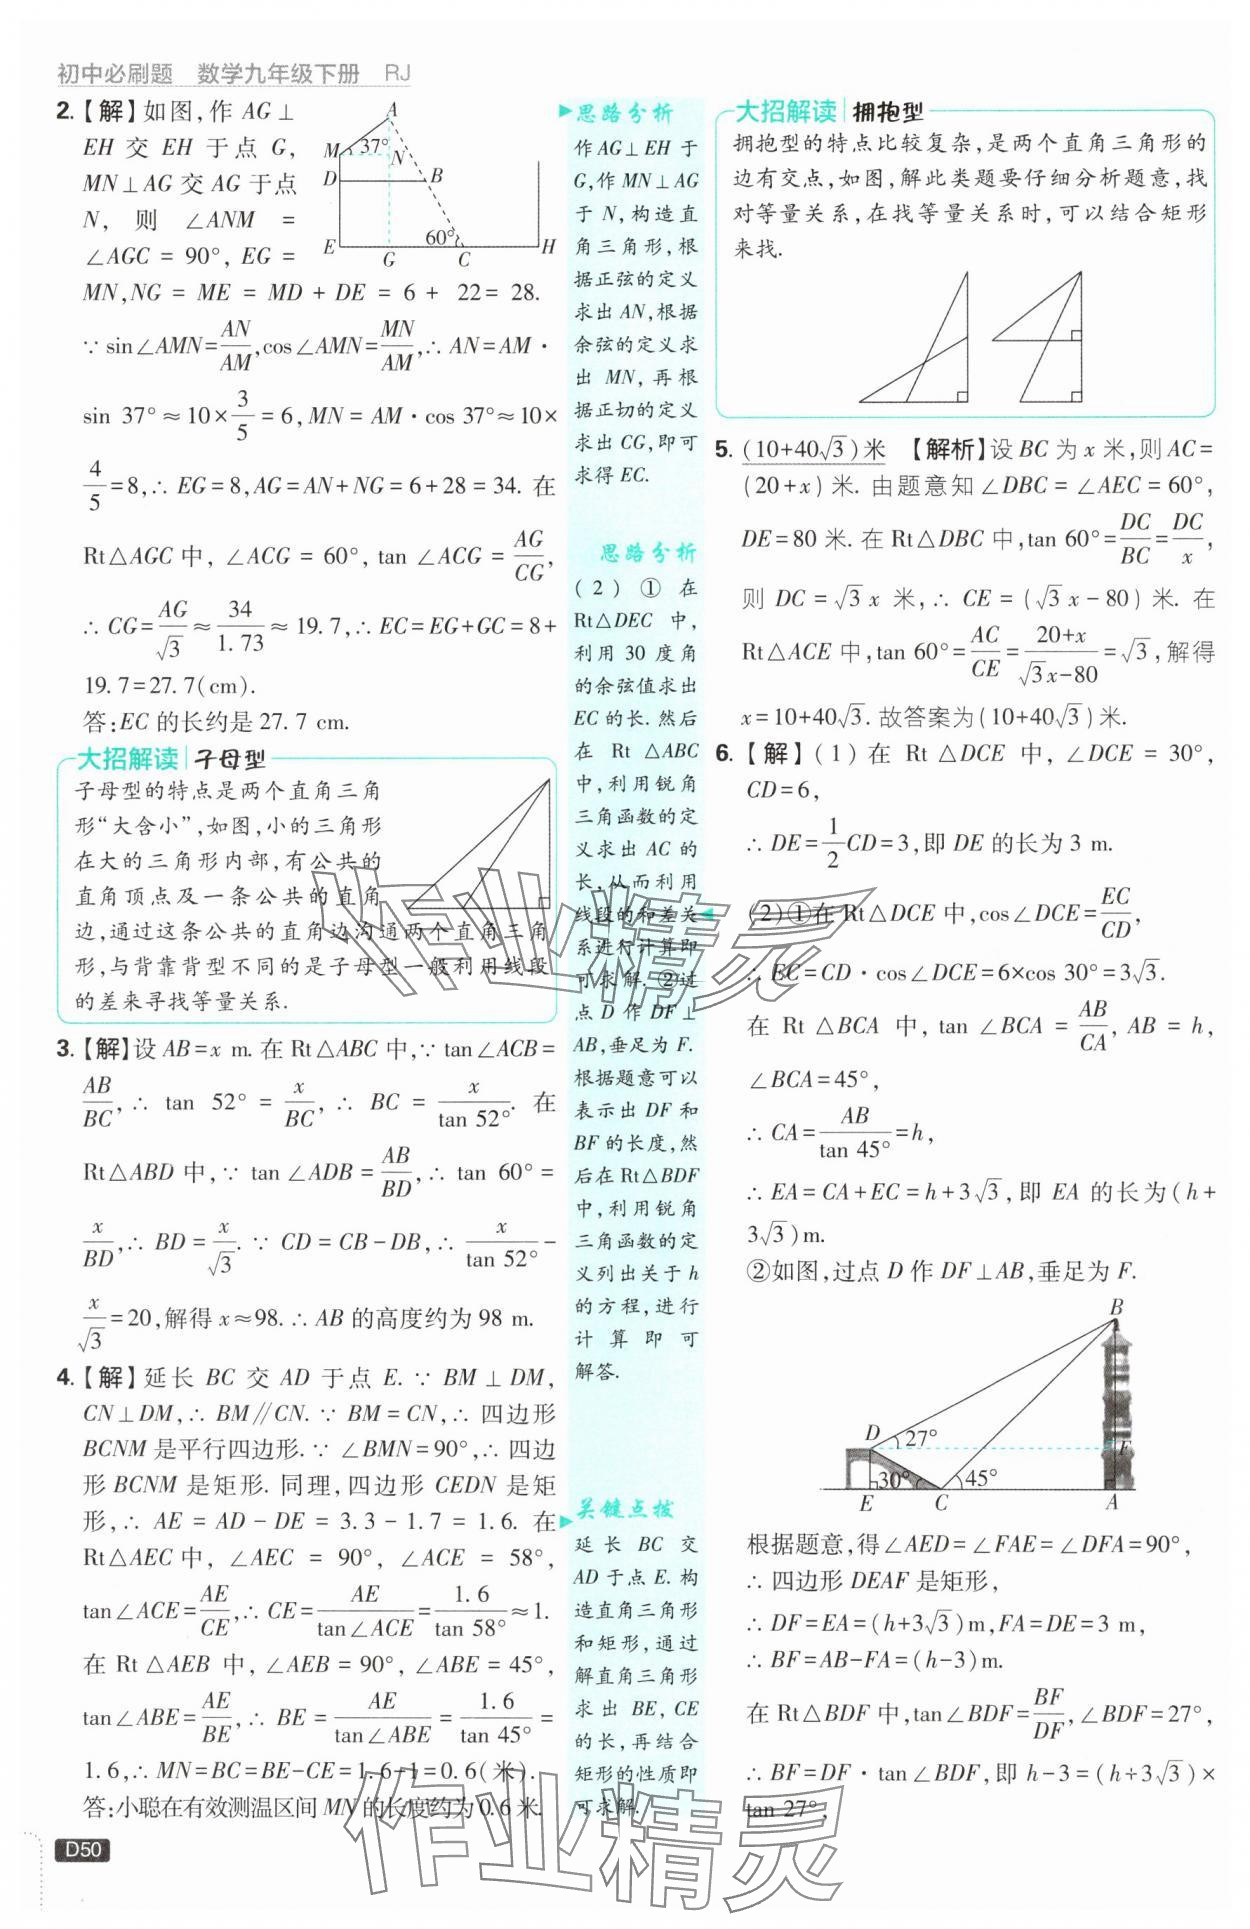 初中必刷题 数学九年级下册 RJ
2.【解】如图,作 AG⊥
EH 交 EH 于点 G,
MN⊥AG 交 AG 于点
N, 则 ∠ANM =
∠AGC = 90°, EG =
MN,NG = ME = MD + DE = 6 + 22 = 28.
∵ sin∠AMN=AN/AM,cos∠AMN=MN/AM,∴ AN=AM·
sin 37°≈10×3/5=6,MN=AM·cos 37°≈10×
4/5=8,∴ EG=8,AG=AN+NG=6+28=34. 在
Rt△AGC 中, ∠ACG = 60°, tan ∠ACG = AG/CG,
∴ CG=AG/√3≈34/1.73≈19.7,∴ EC=EG+GC=8+
19.7=27.7(cm).
答:EC 的长约是 27.7 cm.
A
M
37°
N
D
B
60°
E
G
C
H
大招解读 子母型
子母型的特点是两个直角三角
形“大含小”,如图,小的三角形
在大的三角形内部,有公共的
直角顶点及一条公共的直角
边,通过这条公共的直角边沟通两个直角三角
形,与背靠背型不同的是子母型一般利用线段
的差来寻找等量关系.
3.【解】设 AB=x m. 在 Rt△ABC 中,∵ tan∠ACB=
AB/BC,∴ tan 52° = x/BC,∴ BC = x/tan 52°. 在
Rt△ABD 中,∵ tan∠ADB=AB/BD,∴ tan 60°=
x/BD,∴ BD=x/√3. ∵ CD=CB-DB,∴ x/tan 52°-
x/√3=20,解得 x≈98. ∴ AB 的高度约为 98 m.
4.【解】延长 BC 交 AD 于点 E. ∵ BM⊥DM,
CN⊥DM,∴ BM∥CN. ∵ BM=CN,∴ 四边形
BCNM 是平行四边形. ∵ ∠BMN=90°,∴ 四边
形 BCNM 是矩形. 同理,四边形 CEDN 是矩
形,∴ AE = AD - DE = 3.3 - 1.7 = 1.6. 在
Rt△AEC 中, ∠AEC = 90°, ∠ACE = 58°,
tan∠ACE=AE/CE,∴ CE=AE/tan∠ACE=1.6/tan 58°≈1.
在 Rt△AEB 中,∠AEB=90°,∠ABE=45°,
tan∠ABE=AE/BE,∴ BE=AE/tan∠ABE=1.6/tan 45°=
1.6,∴ MN=BC=BE-CE=1.6-1=0.6(米).
答:小聪在有效测温区间 MN 的长度约为 0.6 米.
D50
思路分析
作 AG⊥EH 于
G,作 MN⊥AG
于 N,构造直
角三角形,根
据正弦的定义
求出 AN,根据
余弦的定义求
出 MN,再根
据正切的定义
求出 CG,即可
求得 EC.
思路分析
(2) ① 在
Rt△DEC 中,
利用 30 度角
的余弦值求出
EC 的长. 然后
在 Rt △ABC
中,利用锐角
三角函数的定
义求出 AC 的
长,从而利用
线段的和差关
系进行计算即
可求解. ②过
点 D 作 DF⊥
AB,垂足为 F.
根据题意可以
表示出 DF 和
BF 的长度,然
后在 Rt△BDF
中,利用锐角
三角函数的定
义列出关于 h
的方程,进行
计算即可
解答.
关键点拨
延长 BC 交
AD 于点 E. 构
造直角三角形
和矩形,通过
解直角三角形
求出 BE,CE
的长,再结合
矩形的性质即
可求解.
大招解读 拥抱型
拥抱型的特点比较复杂,是两个直角三角形的
边有交点,如图,解此类题要仔细分析题意,找
对等量关系,在找等量关系时,可以结合矩形
来找.
5. (10+40√3)米 【解析】设 BC 为 x 米,则 AC=
(20+x)米. 由题意知∠DBC=∠AEC=60°,
DE=80 米. 在 Rt△DBC 中,tan 60°=DC/BC=DC/x,
则 DC = √3x 米,∴ CE = (√3x-80)米. 在
Rt△ACE 中,tan 60°=AC/CE=20+x/√3x-80=√3,解得
x=10+40√3. 故答案为(10+40√3)米.
6.【解】(1) 在 Rt △DCE 中, ∠DCE = 30°,
CD=6,
∴ DE=1/2CD=3,即 DE 的长为 3 m.
(2)①在 Rt△DCE 中,cos∠DCE=EC/CD,
∴ EC=CD·cos∠DCE=6×cos 30°=3√3.
在 Rt △BCA 中, tan ∠BCA = AB/CA, AB = h,
∠BCA=45°,
∴ CA=AB/tan 45°=h,
∴ EA=CA+EC=h+3√3,即 EA 的长为(h+
3√3)m.
②如图,过点 D 作 DF⊥AB,垂足为 F.
B
D
27°
F
30°
45°
E
C
A
根据题意,得∠AED=∠FAE=∠DFA=90°,
∴ 四边形 DEAF 是矩形,
∴ DF=EA=(h+3√3)m,FA=DE=3 m,
∴ BF=AB-FA=(h-3)m.
在 Rt△BDF 中,tan∠BDF=BF/DF,∠BDF=27°,
∴ BF=DF·tan∠BDF,即 h-3=(h+3√3)×
tan 27°,
作业精灵
作业精灵